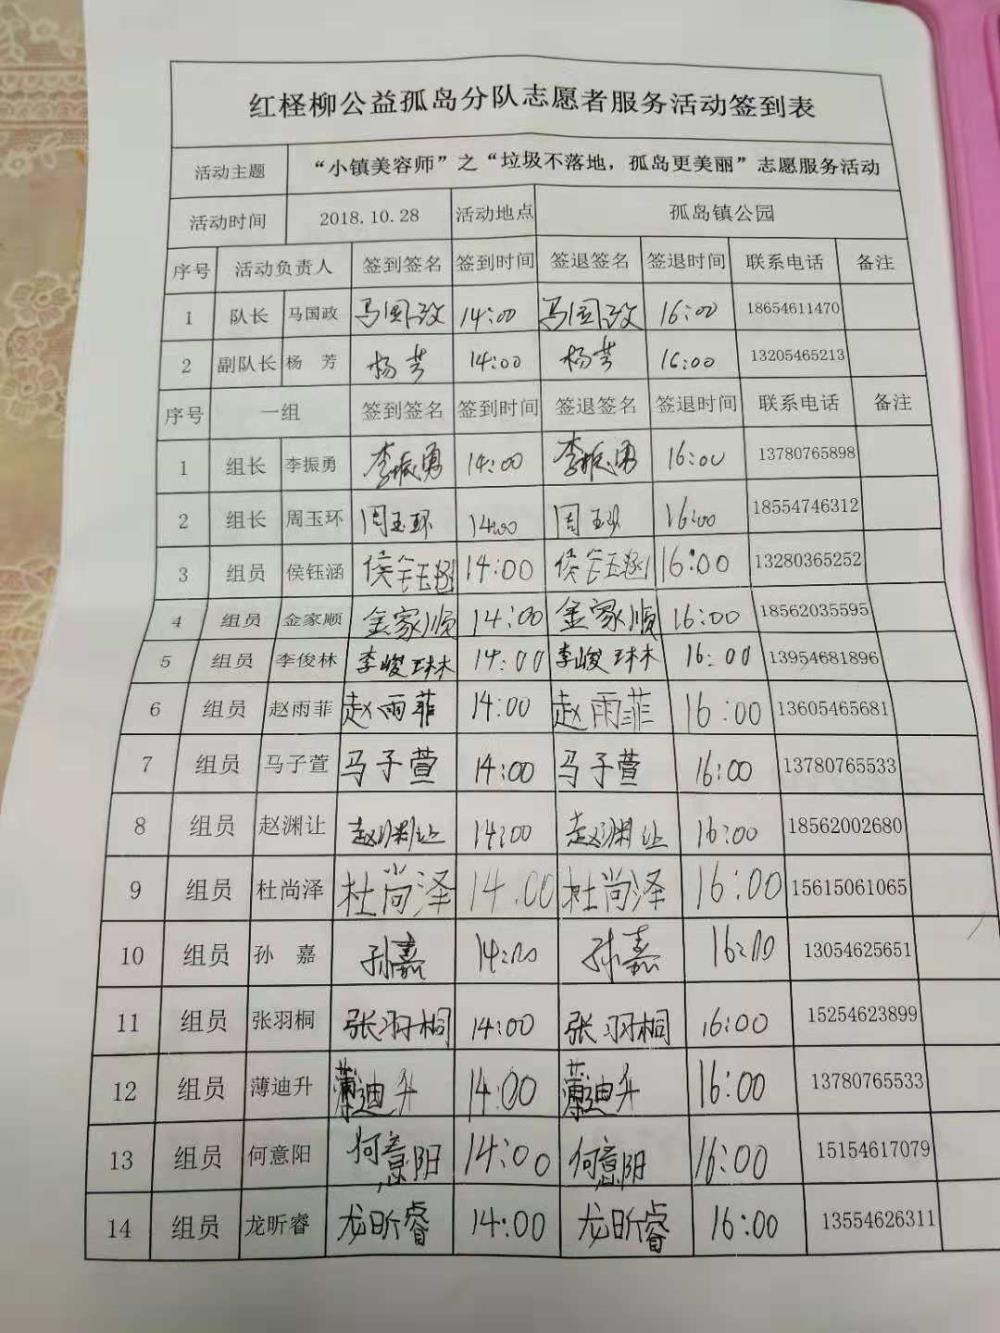 红柽柳公益孤岛分队志愿者服务活动签到表
活动主题 “小镇美容师”之“垃圾不落地，孤岛更美丽”志愿服务活动
活动时间 2018.10.28 活动地点 孤岛镇公园
序号 活动负责人 签到签名 签到时间 签退签名 签退时间 联系电话 备注
1 队长 马国政 马国政 14:00 马国政 16:00 18654611470
2 副队长 杨 芳 杨芳 14:00 杨芳 16:00 13205465213
序号 一组 签到签名 签到时间 签退签名 签退时间 联系电话 备注
1 组长 李振勇 李振勇 14:00 李振勇 16:00 13780765898
2 组长 周玉环 周玉环 14:00 周玉环 16:00 18554746312
3 组员 侯钰涵 侯钰涵 14:00 侯钰涵 16:00 13280365252
4 组员 金家顺 金家顺 14:00 金家顺 16:00 18562035595
5 组员 李俊林 李峻琳 14:00 李峻琳 16:00 13954681896
6 组员 赵雨菲 赵雨菲 14:00 赵雨菲 16:00 13605465681
7 组员 马子萱 马子萱 14:00 马子萱 16:00 13780765533
8 组员 赵渊让 赵渊让 14:00 赵渊让 16:00 18562002680
9 组员 杜尚泽 杜尚泽 14.00 杜尚泽 16:00 15615061065
10 组员 孙 嘉 孙嘉 14:00 孙嘉 16:00 13054625651
11 组员 张羽桐 张羽桐 14:00 张羽桐 16:00 15254623899
12 组员 薄迪升 薄迪升 14:00 薄迪升 16:00 13780765533
13 组员 何意阳 何意阳 14:00 何意阳 16:00 15154617079
14 组员 龙昕睿 龙昕睿 14:00 龙昕睿 16:00 13554626311